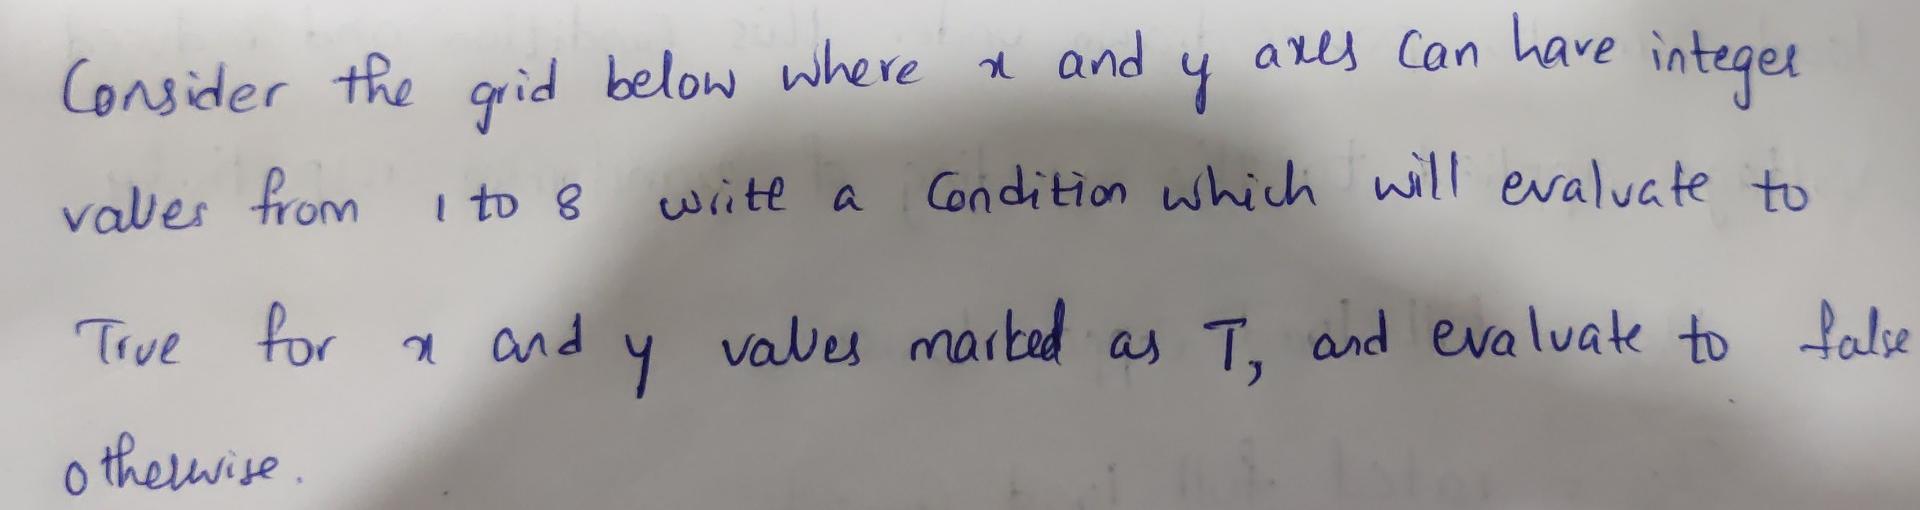 Consider the grid below where x and y axes can have integer
values from 1 to 8 write a Condition which will evaluate to
True for x and y values marked as T, and evaluate to false
otherwise.